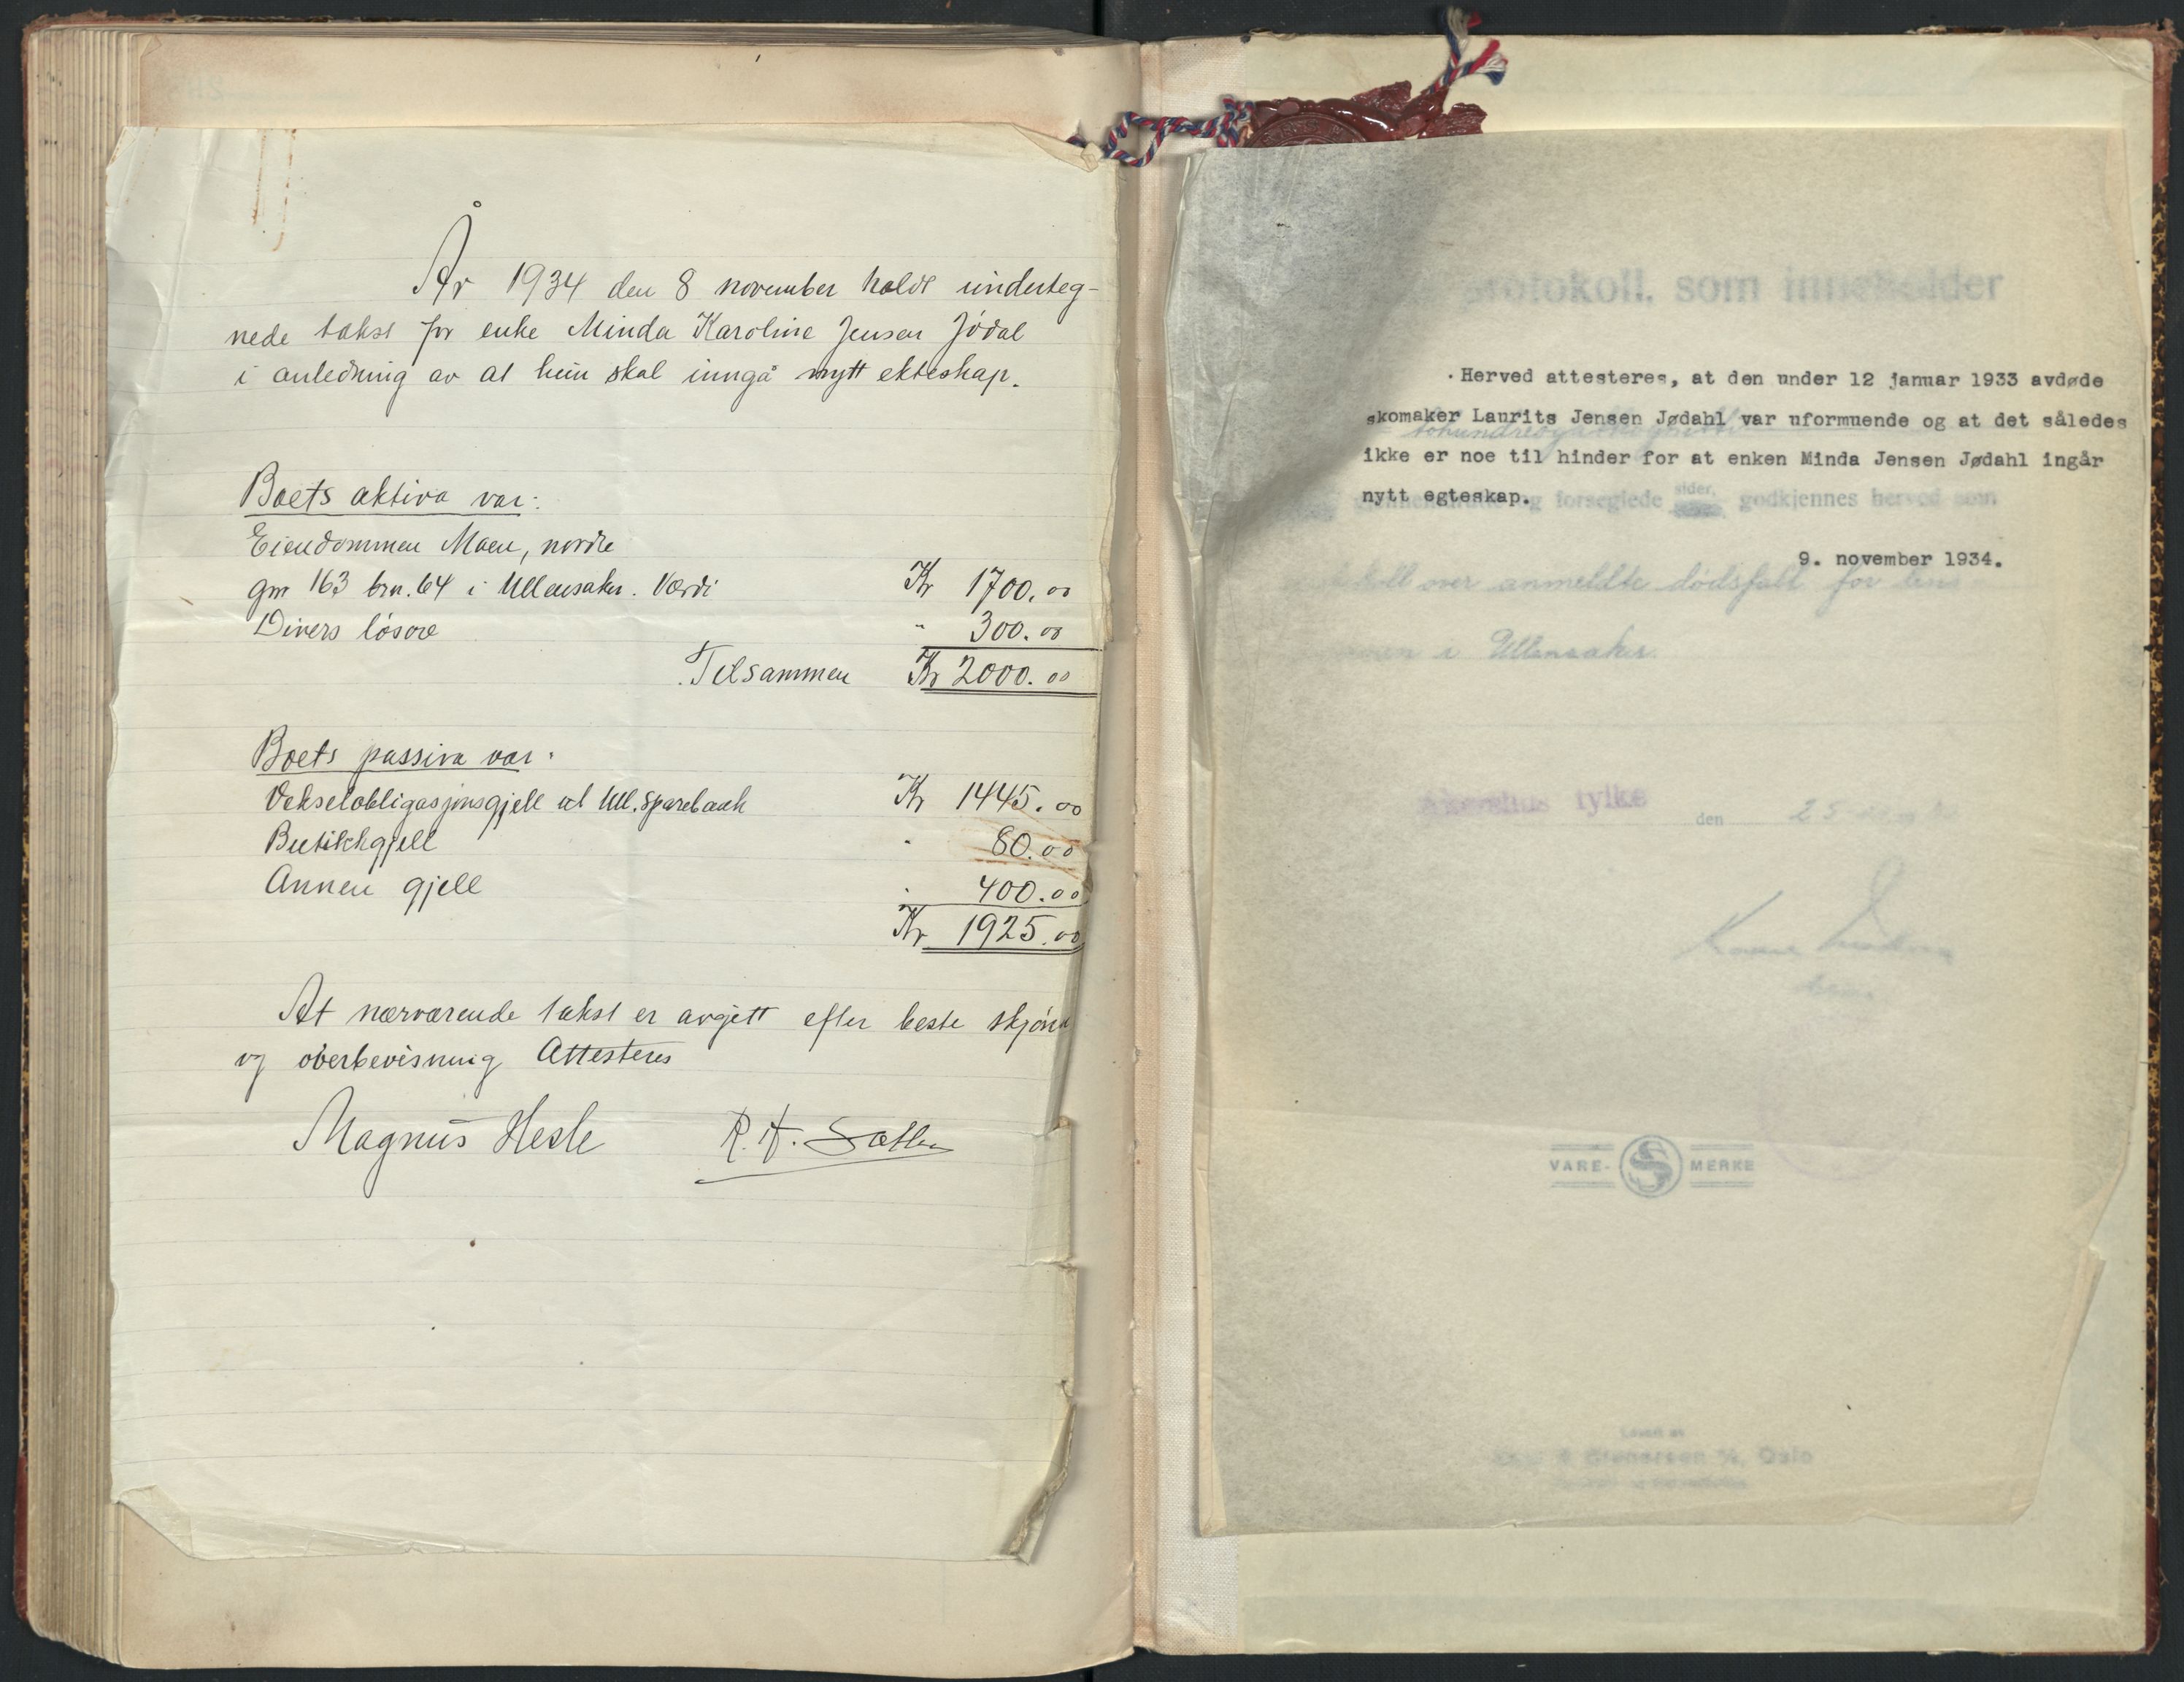 År 1934 den 8 november holdt underteg-
nede takst for enke Minda Karoline Jensen Jødal
i anledning av at hun skal inngå nytt ekteskap.
Boets aktiva var:
Eiendommen Moen, nordre
gnr 163 brn. 64 i Ullensaker. Værdi Kr 1700.00
Divers løsøre " 300.00
Tilsammen Kr 2000.00
Boets passiva var:
Vekselobligasjonsgjell til Ull. Sparebank Kr 1445.00
Butikkgjell " 80.00
Annen gjell " 400.00
Kr 1925.00
At nærværende takst er avgitt efter beste skjønn
og overbevisning Attesteres
Magnus Hesle R. H. Sætler
protokoll, som inneholder
Herved attesteres, at den under 12 januar 1933 avdøde
skomaker Laurits Jensen Jødahl var uformuende og at det således
ikke er noe til hinder for at enken Minda Jensen Jødahl ingår
nytt egteskap.
og forseglede sider, godkjennes herved som
9. november 1934.
over anmeldte dødsfall for
i Ullensaker.
Akershus fylke den 25
VARE- S MERKE
Oslo